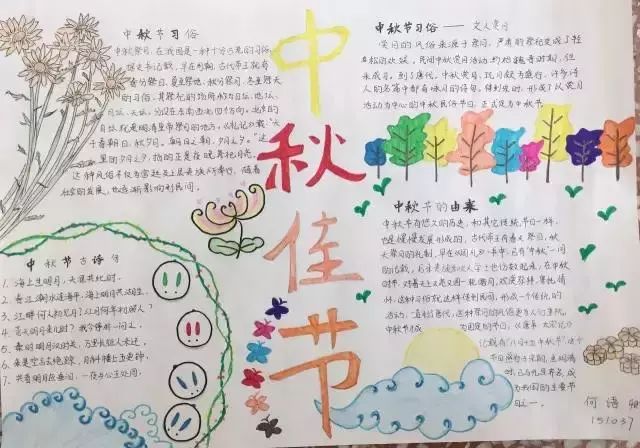 中秋佳节
中秋节习俗
中秋祭月，在我国是一种十分古老的习俗。
据史书记载，早在周朝，古代帝王就有
春分祭日、夏至祭地、秋分祭月、冬至祭天
的习俗，其祭祀的场所称为日坛、地坛、
月坛、天坛，分设在东南西北四个方向。北京的
月坛就是明清皇帝祭月的地方。《礼记》载：“天
子春朝日，秋夕月。朝日之朝，夕月之夕。”这
里的夕月之夕，指的正是夜晚祭祀月亮。
这种风俗不仅为宫廷及上层贵族所奉行，随着
社会的发展，也逐渐影响到民间。
中秋节习俗——文人赏月
赏月的风俗来源于祭月，严肃的祭祀变成了轻
松的欢娱。民间中秋赏月活动约始魏晋时期，但
未成习。到了唐代，中秋赏月、玩月颇为盛行，许多诗
人的名篇中都有咏月的诗句，
活动为中心的中秋民俗节日，正式定为中秋节。
中秋节的由来
中秋节有悠久的历史，和其它传统节日一样，
也是慢慢发展形成的，古代帝王有春天祭日，秋
天祭月的礼制，早在《周礼》一书中，已有“中秋”一词
的记载。后来贵族和文人学士也仿效起来，在中秋
时节，对着天上又亮又圆一轮皓月，观赏祭拜，寄托情
怀，这种习俗就这样传到民间，形成一个传统的
活动，一直到了唐代，这种祭月的风俗更为人们重视，
中秋节才成为固定的节日，《唐书·太宗记》
记载有“八月十五中秋节”，这个
节日盛行于宋朝，至明清
时，已与元旦齐名，成
为我国的主要节
日之一。
中秋节古诗句
1、海上生明月，天涯共此时。
2、春江潮水连海平，海上明月共潮生。
3、江畔何人初见月？江月何年初照人？
4、青天有月来几时？我今停杯一问之。
5、
6、来是空言去绝踪，月斜楼上五更钟。
7、共看明月应垂泪，一夜乡心五处同。
何语